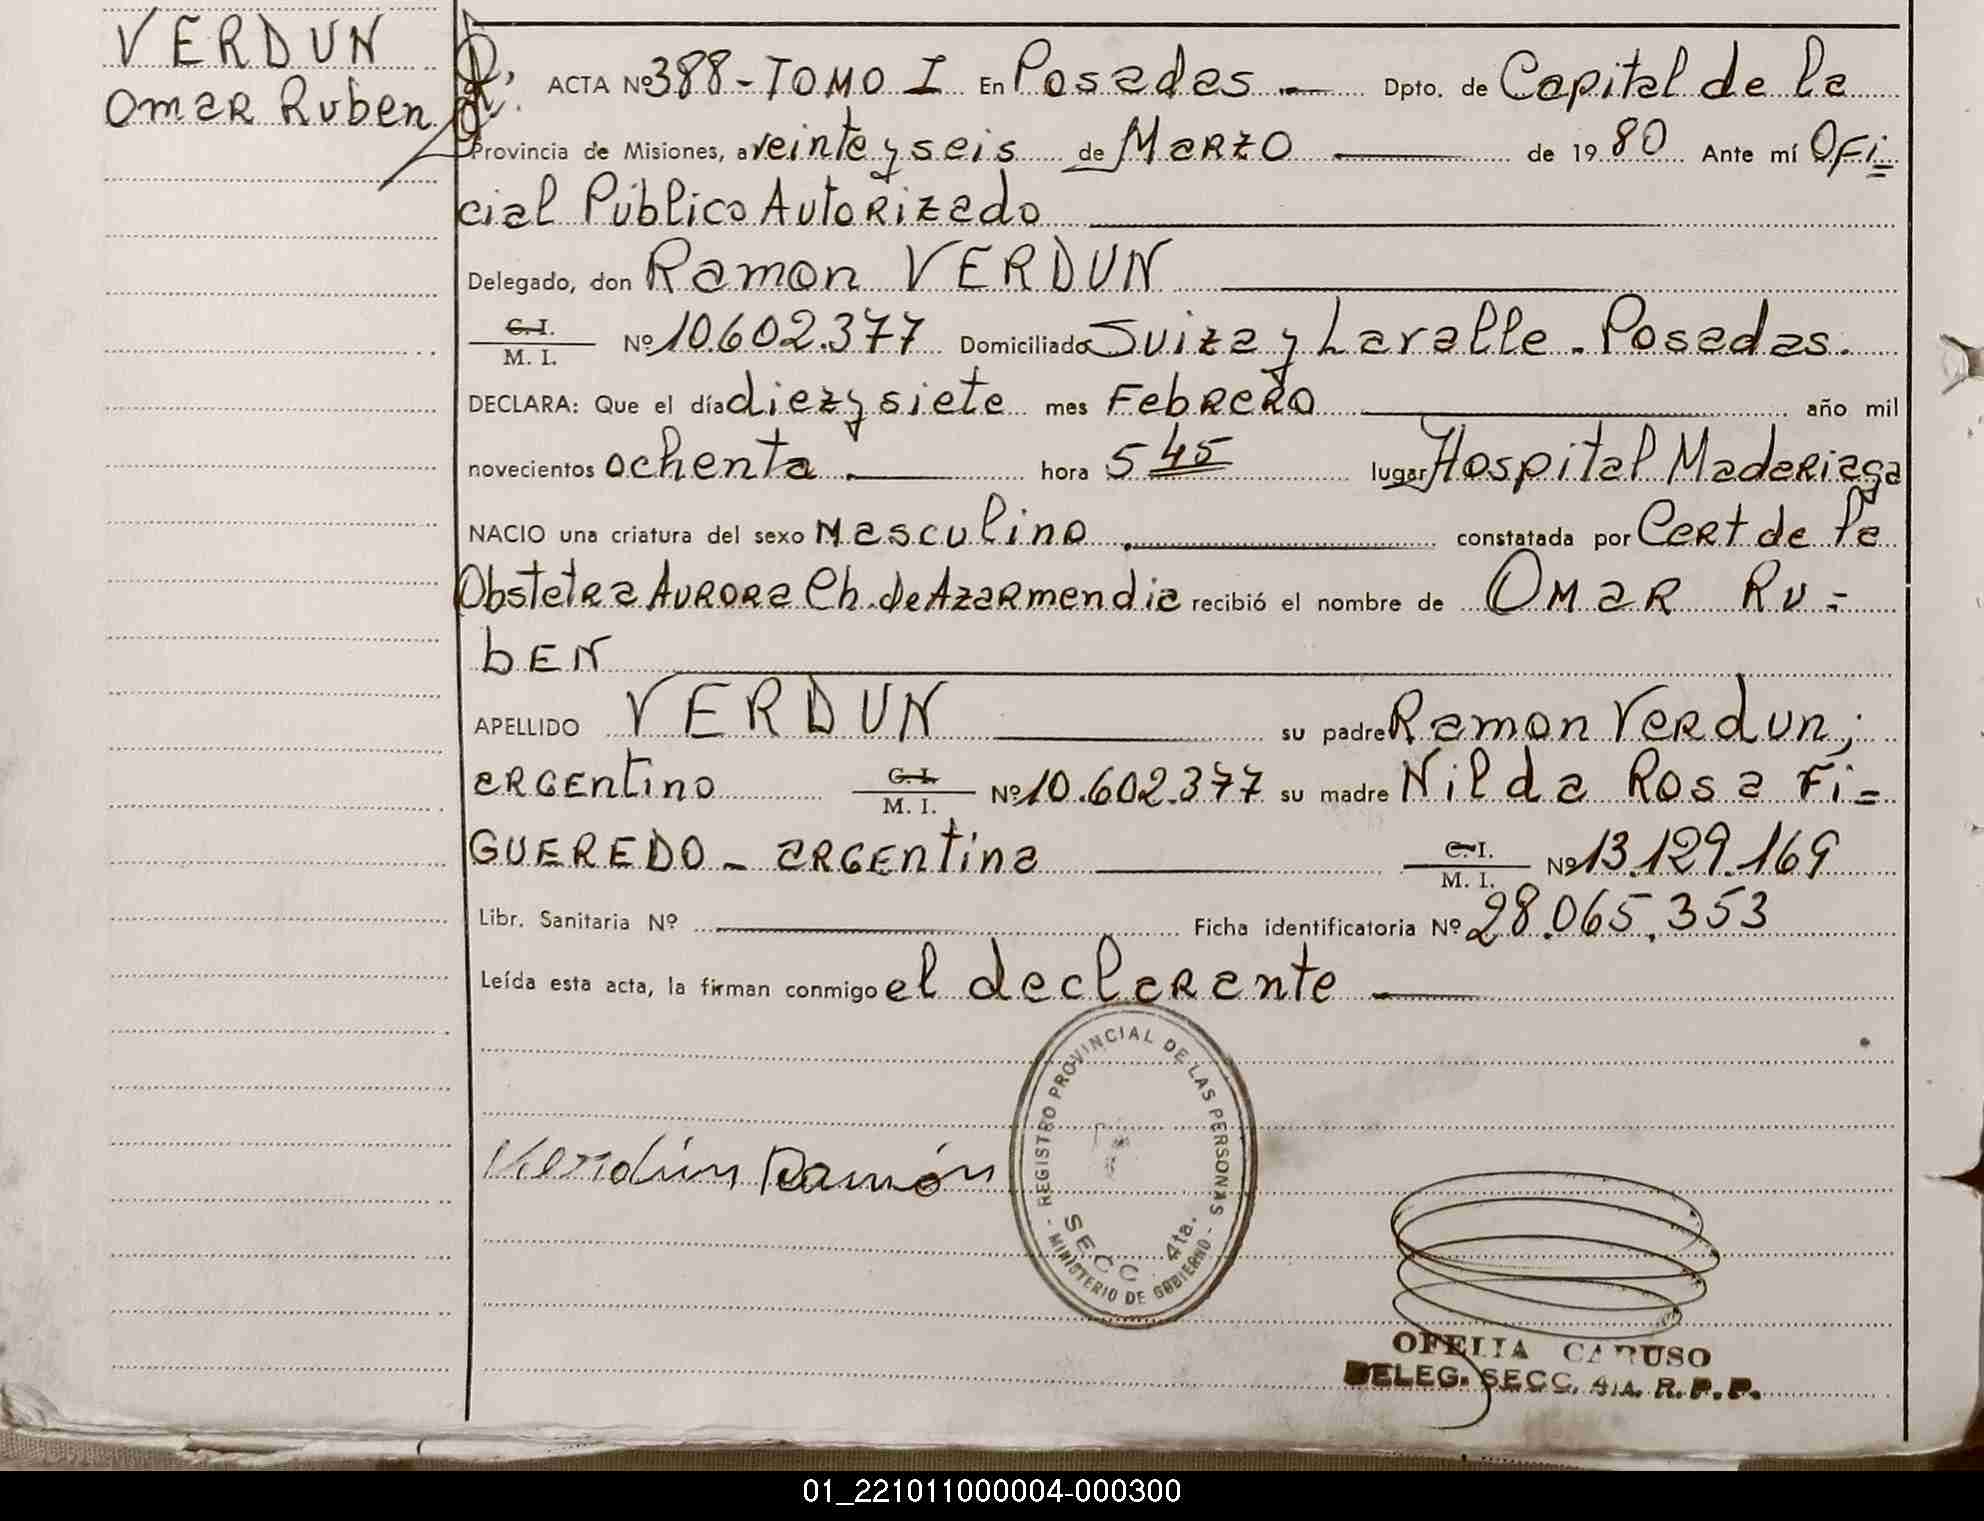 VERDUN
Omar Ruben
ACTA Nº 388 - TOMO I En Posadas Dpto. de Capital de la
Provincia de Misiones, a veinte y seis de Marzo de 1980 Ante mí Ofi=
cial Público Autorizado
Delegado, don Ramon VERDUN
C. I. / M. I. Nº 10.602.377 Domiciliado Suiza y Lavalle - Posadas.
DECLARA: Que el día diez y siete mes Febrero año mil
novecientos ochenta hora 5 45 lugar Hospital Madariaga
NACIO una criatura del sexo Masculino constatada por Cert de la
Obstetra Aurora Ch. de Azarmendia recibió el nombre de Omar Ru=
bEN
APELLIDO VERDUN su padre Ramon Verdun;
argentino C. I. / M. I. Nº 10.602.377 su madre Nilda Rosa Fi=
GUEREDO - argentina C. I. / M. I. Nº 13.129.169
Libr. Sanitaria Nº Ficha identificatoria Nº 28.065.353
Leída esta acta, la firman conmigo el declarante
REGISTRO PROVINCIAL DE LAS PERSONAS
SECC. 4ta.
- MINISTERIO DE GOBIERNO -
Verdún Ramón
OFELIA CARUSO
DELEG. SECC. 4ta. R. P. P.
01_221011000004-000300